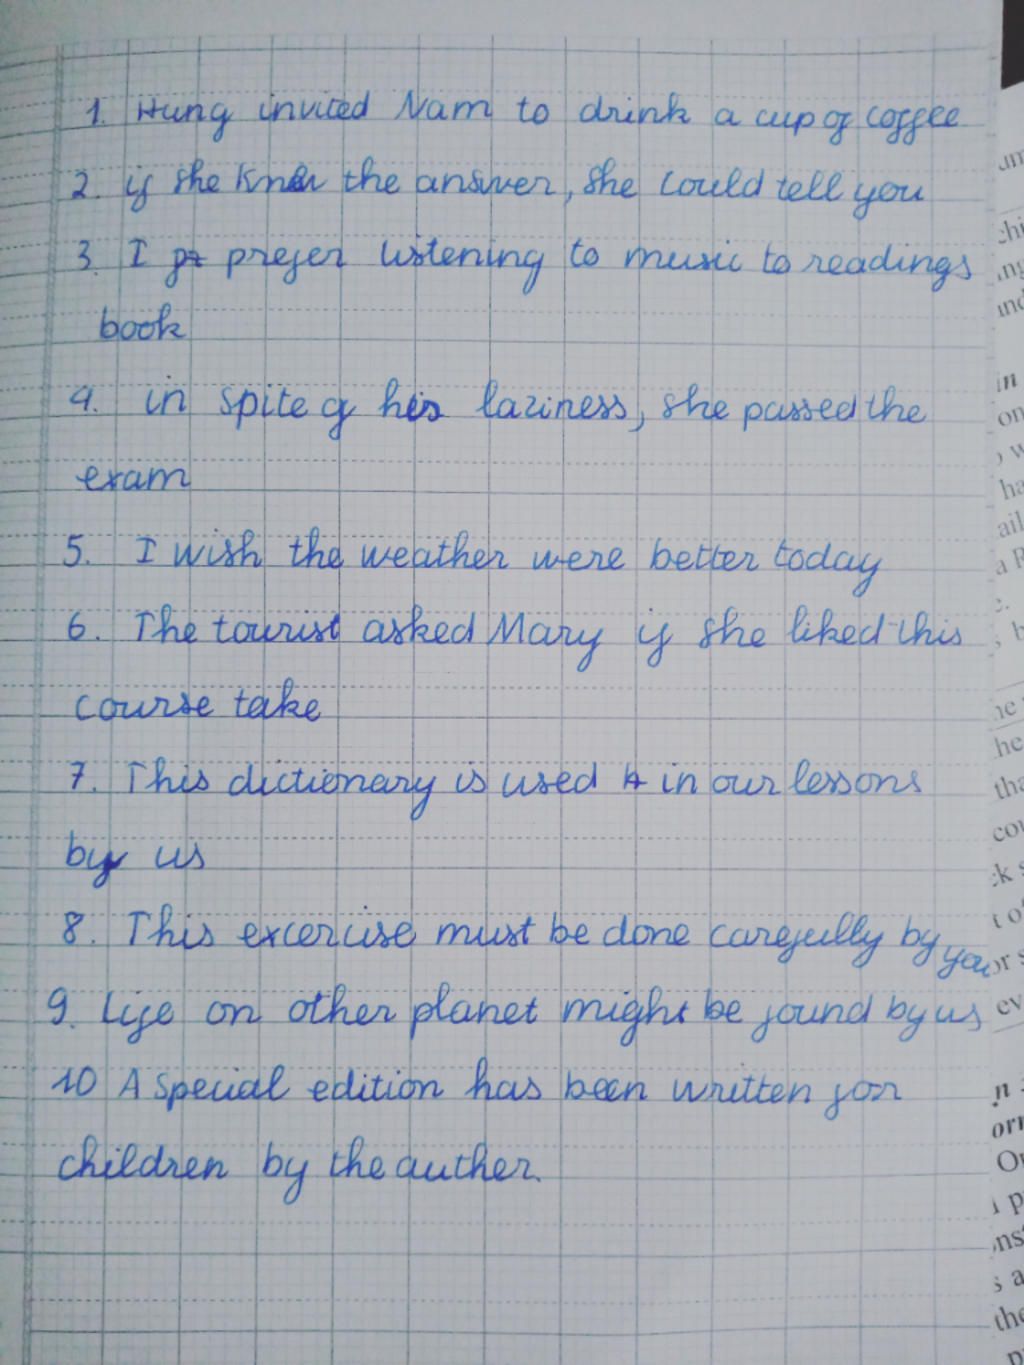 1. Hung invited Nam to drink a cup of coffee
2. if she knew the answer, she could tell you
3. I prefer listening to music to readings
book
4. in spite of his laziness, she passed the
exam
5. I wish the weather were better today
6. The tourist asked Mary if she liked this
course take
7. This dictionary is used in our lessons
by us
8. This excercise must be done carefully by you
9. Life on other planet might be found by us
10 A special edition has been written for
children by the auther.